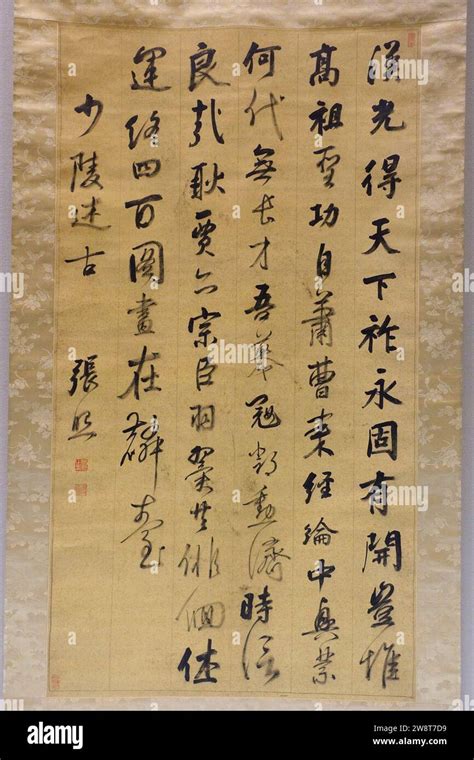 漢光得天下祚永固有開豈惟
高祖聖功自蕭曹來經綸中興業
何代無長才吾慕寇鄧勳濟時信
良哉耿賈亦宗臣羽翼共俳佪休
運終四百圖畫在麟臺
少陵述古 張照
alamy
Image ID: 2W8T7D9
www.alamy.com